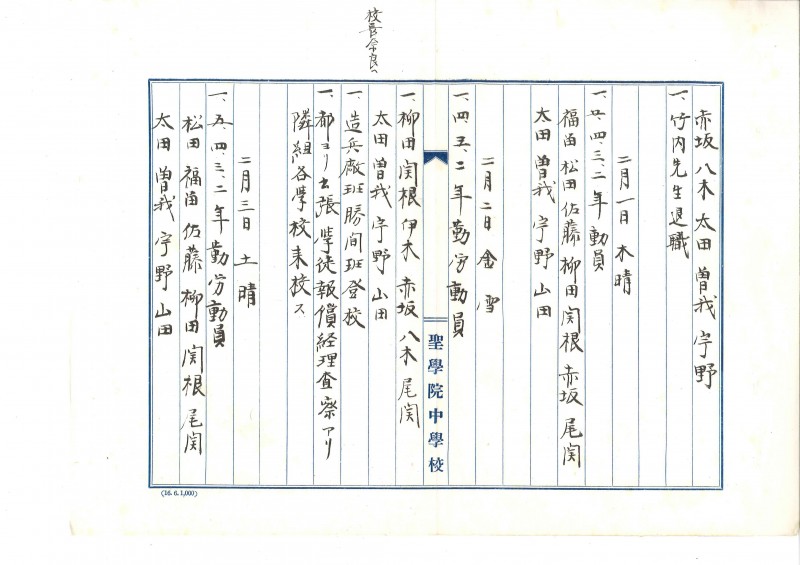 赤坂 八木 太田 曽我 宇野
一、竹内先生退職
二月一日 木 晴
四、三、二年動員
福田 松田 佐藤 柳田 関根 赤坂 尾関
太田 曽我 宇野 山田
二月二日 金 雪
一、四、五、二年勤労動員
校長奈良へ
聖學院中學校
一、柳田 関根 伊木 赤坂 八木 尾関
太田 曽我 宇野 山田
一、造兵廠班勝間班登校
一、都ヨリ出張学徒報償経理査察アリ
隣組各学校来校ス
二月三日 土 晴
一、五、四、三、二年勤労動員
松田 福田 佐藤 柳田 関根 尾関
太田 曽我 宇野 山田
(16.6.1,000)